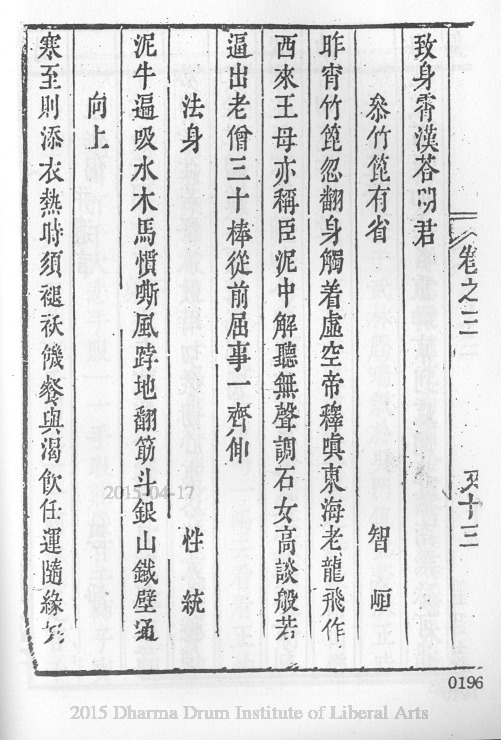 致身霄漢荅明君
叅竹篦有省 智𠧧
昨宵竹篦忽翻身觸着虛空帝釋嗔東海老龍飛作
西來王母亦稱臣泥中解聽無聲調石女高談般若
逼出老僧三十棒從前屈事一齊伸
法身 性統
泥牛逼吸水木馬慣嘶風跨地翻筋斗銀山鐵壁通
向上
寒至則添衣熱時須褪袄饑餐與渴飲任運隨緣
卷之三
又十三
0196
2015-04-17
2015 Dharma Drum Institute of Liberal Arts